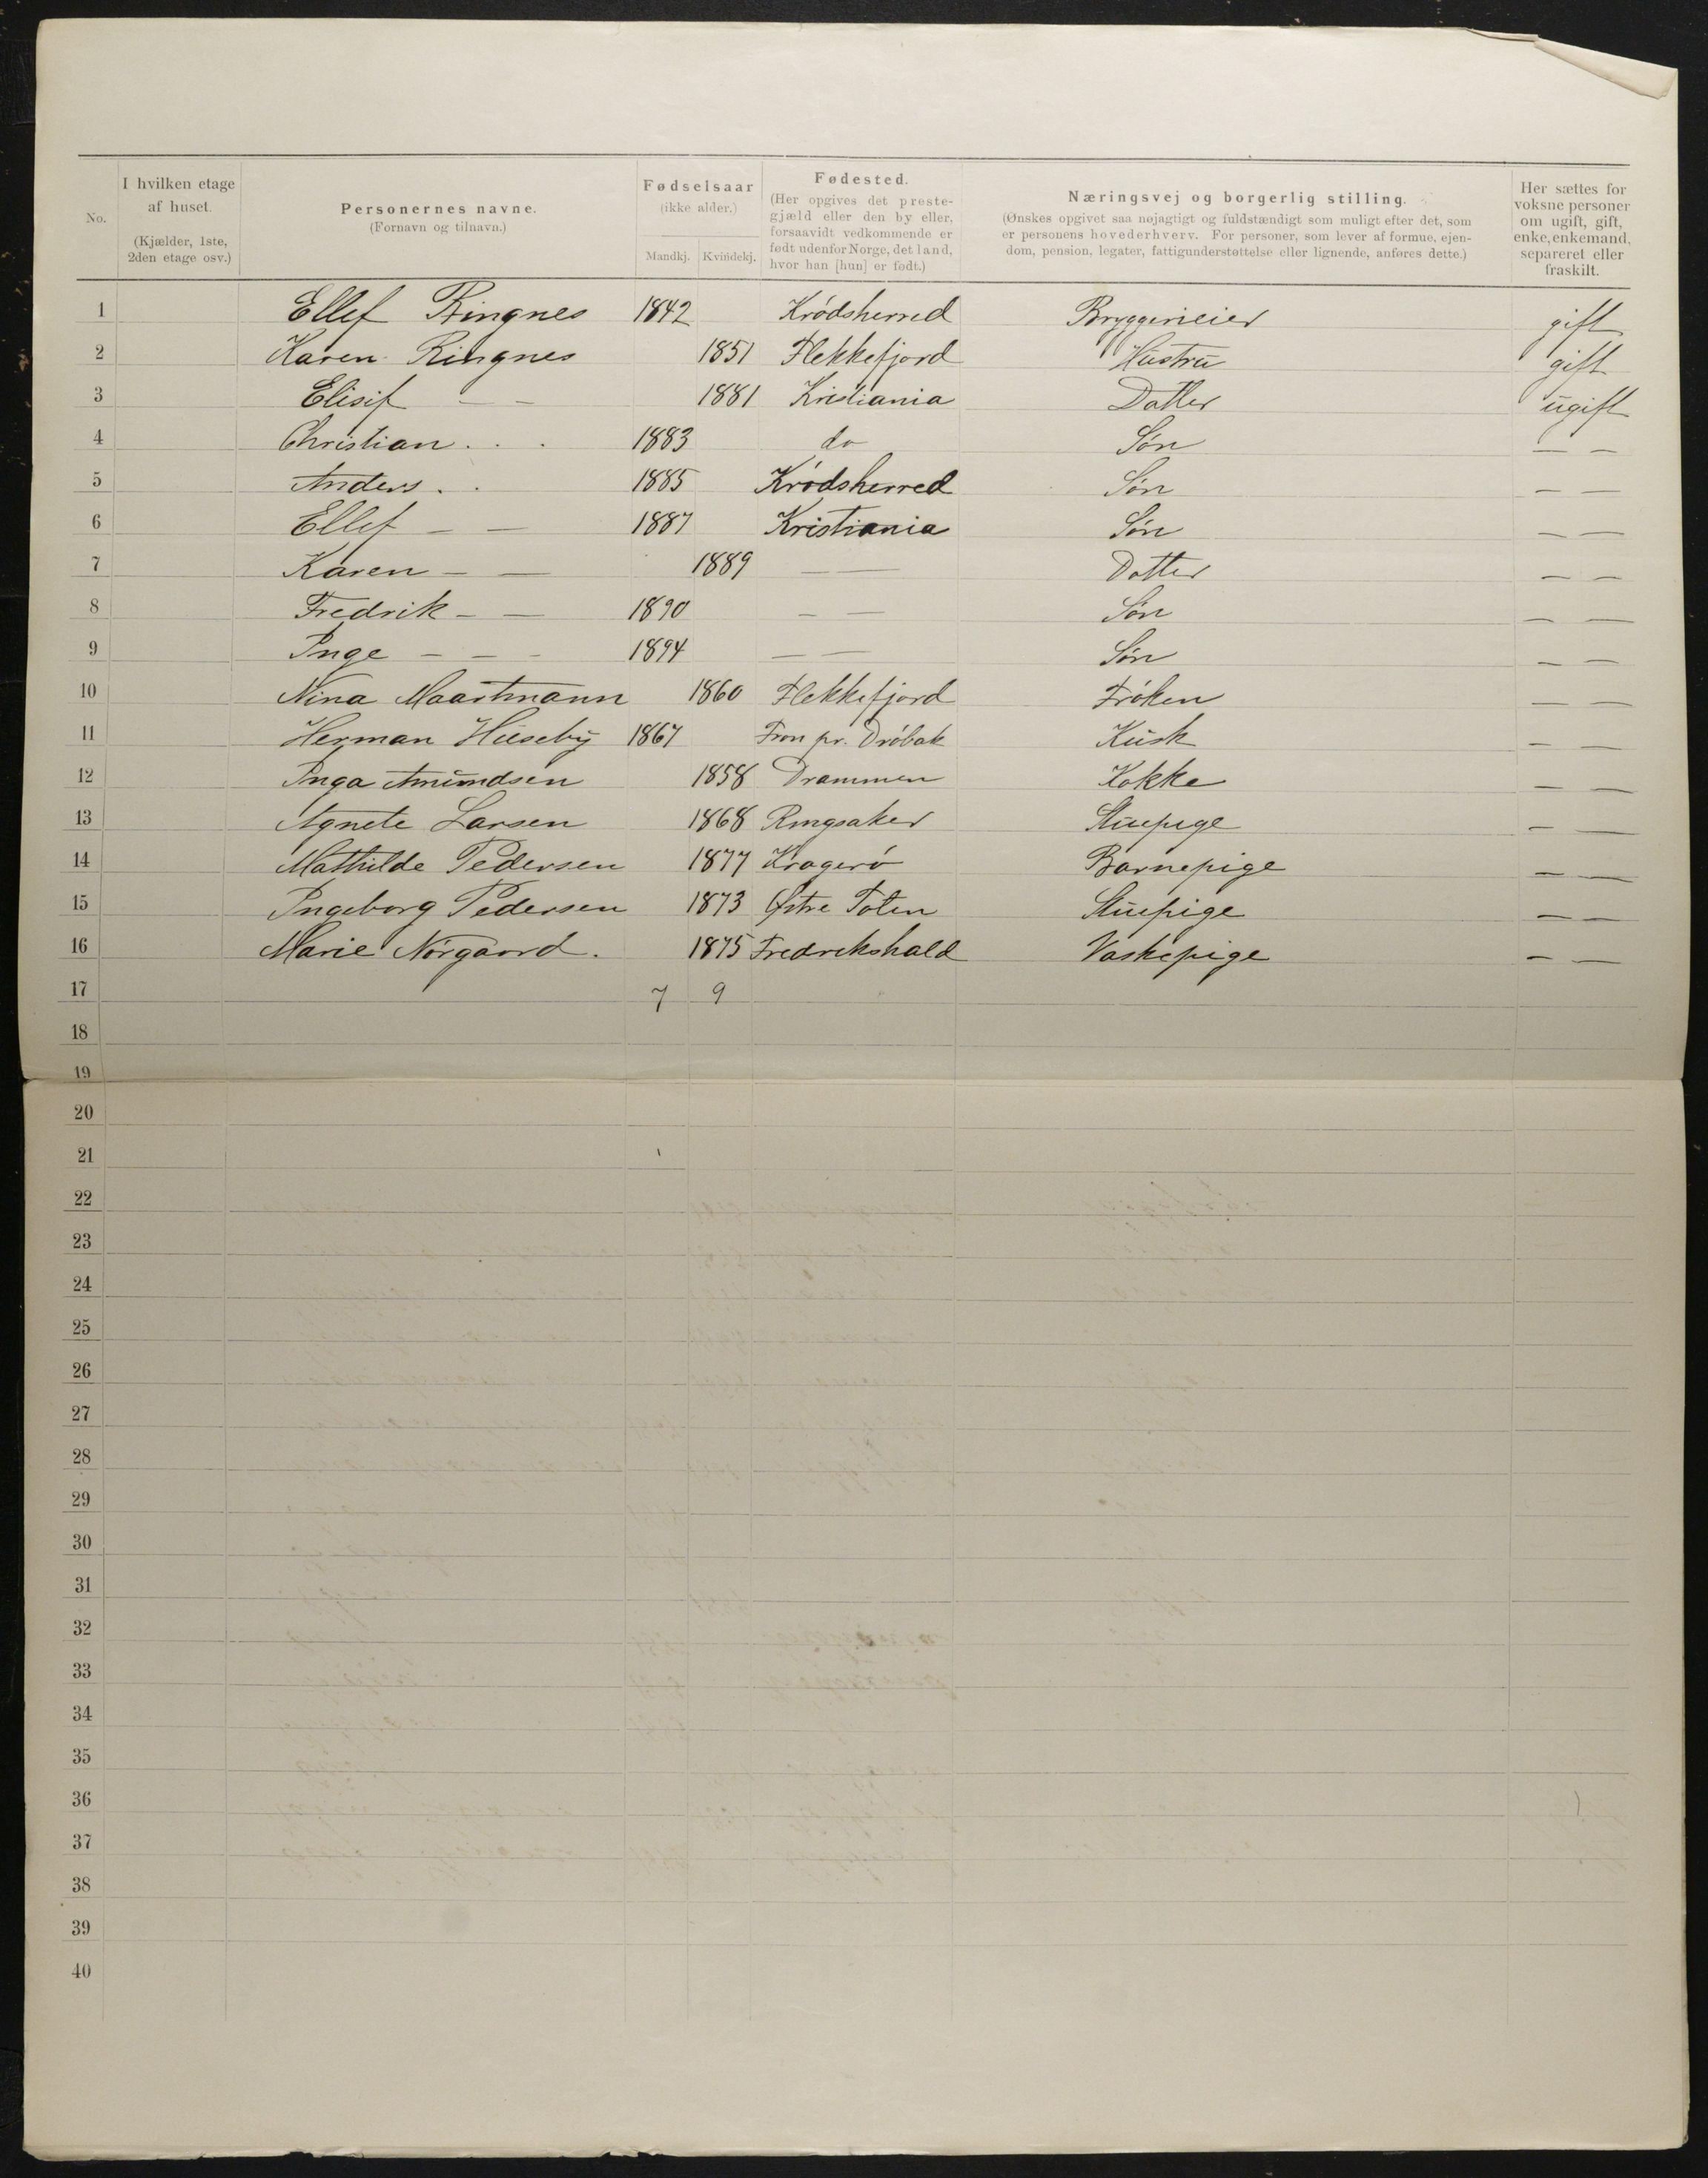 No.
I hvilken etage af huset. (Kjælder, 1ste, 2den etage osv.)
Personernes navne. (Fornavn og tilnavn.)
Fødselsaar (ikke alder.) Mandkj. Kvindekj.
Fødested. (Her opgives det prestegjæld eller den by eller, forsaavidt vedkommende er født udenfor Norge, det land, hvor han [hun] er født.)
Næringsvej og borgerlig stilling. (Ønskes opgivet saa nøjagtigt og fuldstændigt som muligt efter det, som er personens hovederhverv. For personer, som lever af formue, ejendom, pension, legater, fattigunderstøttelse eller lignende, anføres dette.)
Her sættes for voksne personer om ugift, gift, enke, enkemand, separeret eller fraskilt.
1 Ellef Ringnes 1842 Krødsherred Bryggerieier gift
2 Karen Ringnes 1851 Flekkefjord Hustru gift
3 Elisif — — 1881 Kristiania Datter ugift
4 Christian . . . 1883 do Søn — —
5 Anders . . 1885 Krødsherred Søn — —
6 Ellef — — 1887 Kristiania Søn — —
7 Karen — — 1889 — — Datter — —
8 Fredrik — — 1890 — — Søn — —
9 Inge — — — 1894 — — Søn — —
10 Nina Maartmann 1860 Flekkefjord Frøken — —
11 Herman Huseby 1867 Fron pr. Drøbak Kusk — —
12 Inga Amundsen 1858 Drammen Kokke — —
13 Agnete Larsen 1868 Ringsaker Stuepige — —
14 Mathilde Pedersen 1877 Kragerø Barnepige — —
15 Ingeborg Pedersen 1873 Østre Toten Stuepige — —
16 Marie Nørgaard. 1875 Fredrikshald Vaskepige — —
17 7 9
18
19
20
21
22
23
24
25
26
27
28
29
30
31
32
33
34
35
36
37
38
39
40